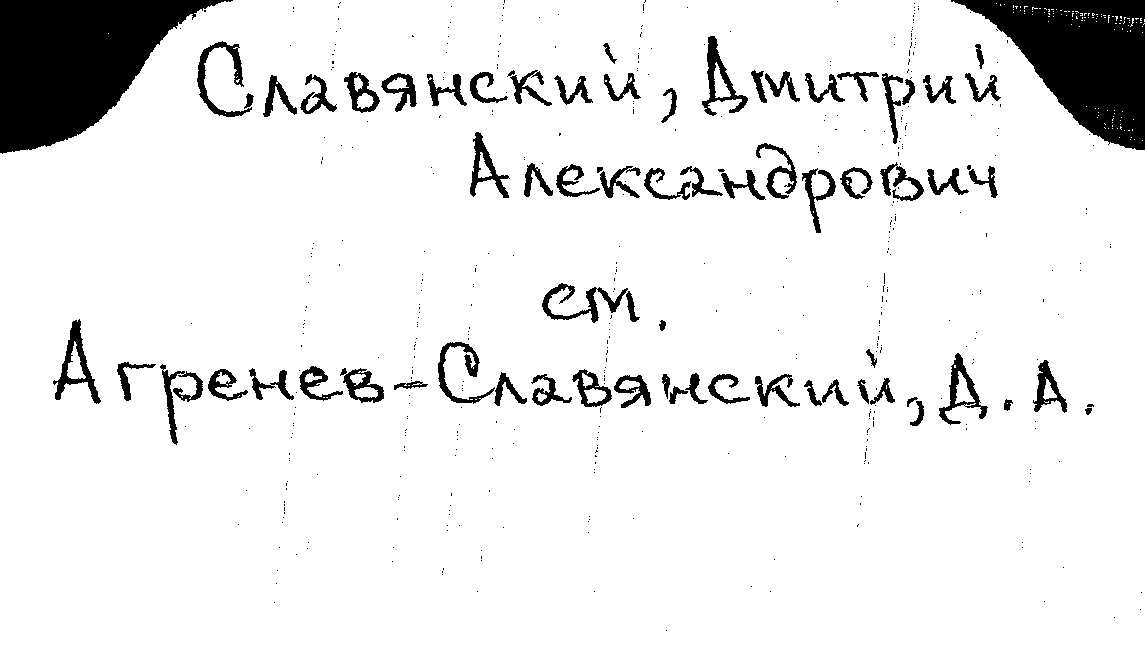 Славянский, Дмитрий
Александрович
см.
Агренев-Славянский, Д. А.